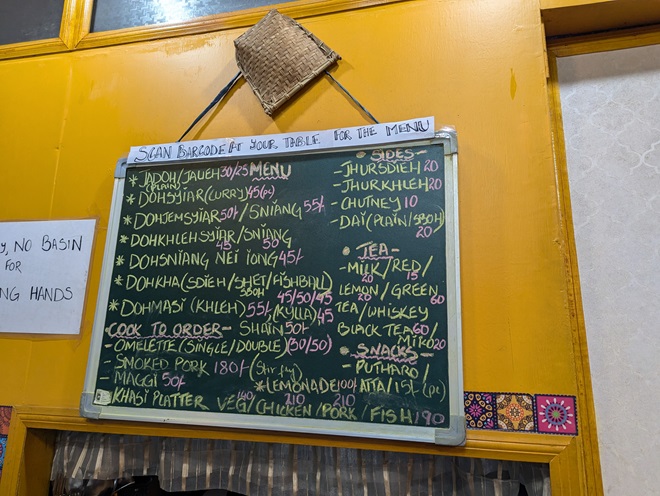 SCAN BARCODE AT YOUR TABLE FOR THE MENU
* JADOH/JAUEH 30/25 MENU
(PLAIN)
* DOHSYIAR (CURRY) 45 (pc)
* DOHJEMSYIAR 50/- / SNIANG 55/-
* DOHKHLEHSYIAR/SNIANG
45 50
* DOHSNIANG NEI IONG 45/-
* DOHKHA (SDIEH/SHET/FISHBALL)
SBOH 45/50/45
* DOHMASI (KHLEH) 55/- (KYLLA) 45
COOK TO ORDER - SHAIN 50/-
- OMELETTE (SINGLE/DOUBLE) (30/50)
- SMOKED PORK 180/- (Shr.fry)
- MAGGI 50/-
* LEMONADE 100/-
- KHASI PLATTER VEG/CHICKEN/PORK/FISH 190
140 210 210
SIDES -
- JHURSDIEH 20
- JHURKHLEH 20
- CHUTNEY 10
- DAI (PLAIN/SBOH)
20
TEA -
- MILK/RED/
20 15
LEMON/GREEN
20 60
TEA/WHISKEY
BLACK TEA 60/
MIKO 20
SNACKS -
- PUTHARO/
ATTA/15/- (pc)
, NO BASIN
FOR
NG HANDS